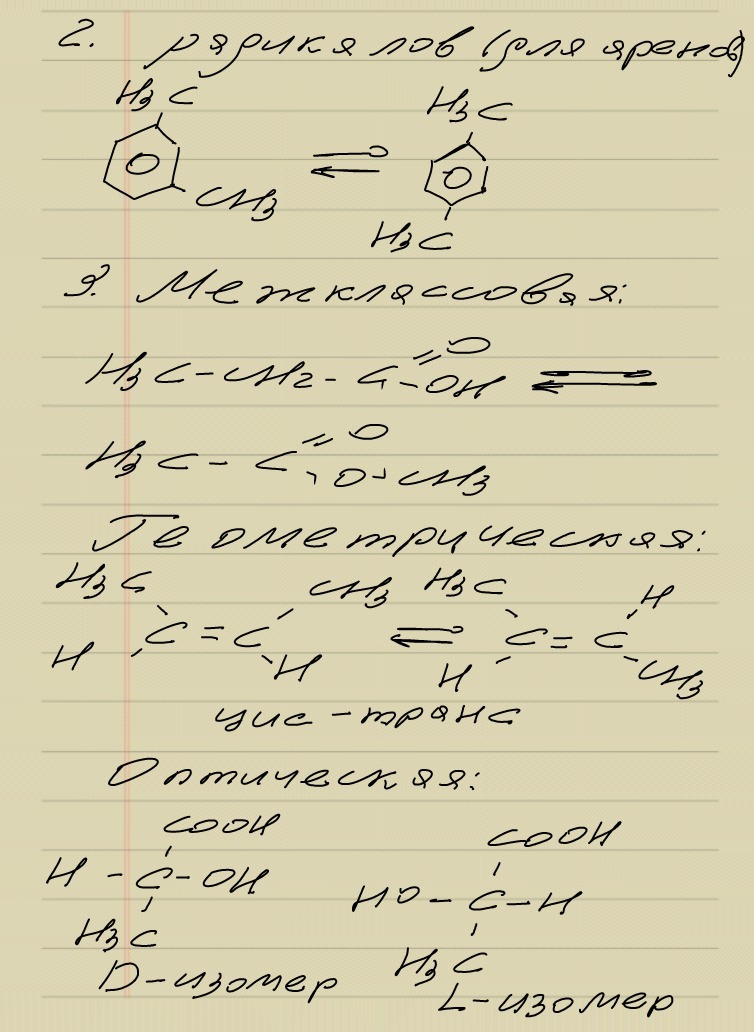 2. радикалов (для аренов)
H3C H3C
CH3
H3C
3. Межклассовая:
H3C - CH2 - C = O - OH ⇌
H3C - C = O - O - CH3
Геометрическая:
H3C CH3 H3C H
C = C ⇌ C = C
H H H CH3
цис - транс
Оптическая:
COOH COOH
H - C - OH HO - C - H
H3C H3C
D - изомер L - изомер